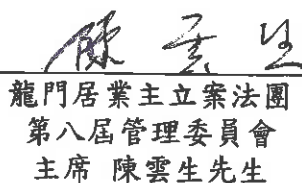 陳雲生
龍門居業主立案法團
第八屆管理委員會
主席 陳雲生先生